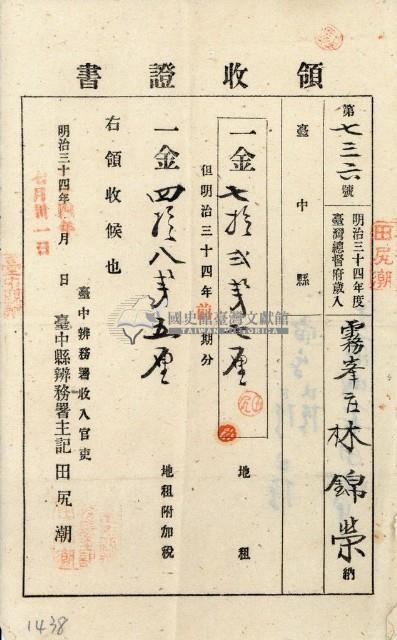 領收證書
第七三六號
明治三十四年度
臺灣總督府歲入
霧峯庄林錦榮納
臺中縣
一金七拾弐銭七厘 地租
但明治三十四年前期分
一金四拾八銭五厘 地租附加稅
右領收候也
明治三十四年 月 日
臺中辨務署收入官吏
臺中縣辨務署主記 田尻潮
國史館臺灣文獻館
TAIWAN HISTORICA
田尻潮
1438